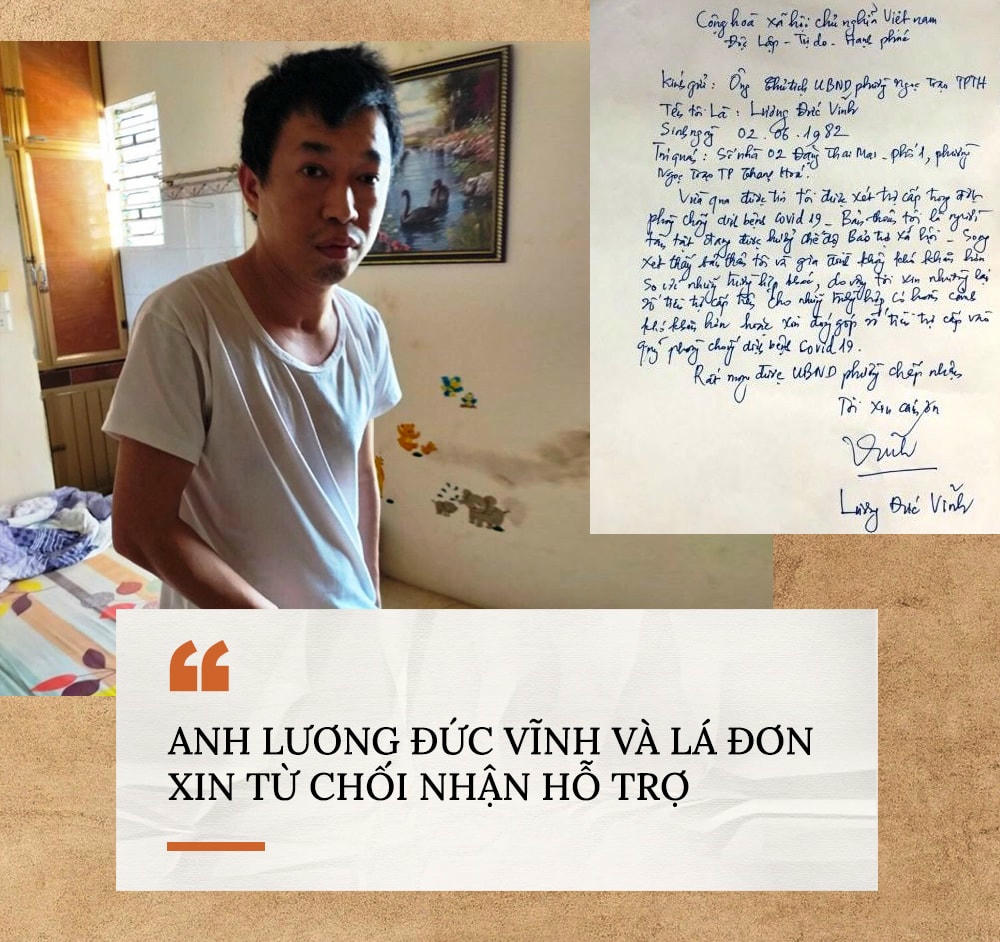 Cộng hoà xã hội chủ nghĩa Việt nam
Độc Lập - Tự do - Hạnh phúc
Kính gửi : Ông Chủ tịch UBND phường Ngọc Trạo TPTH
Tên tôi Là : Lương Đức Vĩnh
Sinh ngày 02.06.1982
Trú quán : Số nhà 02 Đặng Thai Mai - phố 1, phường
Ngọc Trạo TP Thanh Hoá.
Vừa qua được tin tôi được xét trợ cấp trong đợt
phòng chống dịch bệnh Covid 19 - Bản thân tôi là người
tàn tật đang được hưởng chế độ Bảo trợ xã hội - Song
xét thấy bản thân tôi và gia đình không khó khăn hơn
so với những trường hợp khác, do vậy tôi xin nhường lại
số tiền trợ cấp trên cho những trường hợp có hoàn cảnh
khó khăn hơn hoặc xin đóng góp số tiền trợ cấp vào
quỹ phòng chống dịch bệnh Covid 19.
Rất mong được UBND phường chấp nhận
Tôi xin cảm ơn
Vĩnh
Lương Đức Vĩnh
“
ANH LƯƠNG ĐỨC VĨNH VÀ LÁ ĐƠN
XIN TỪ CHỐI NHẬN HỖ TRỢ